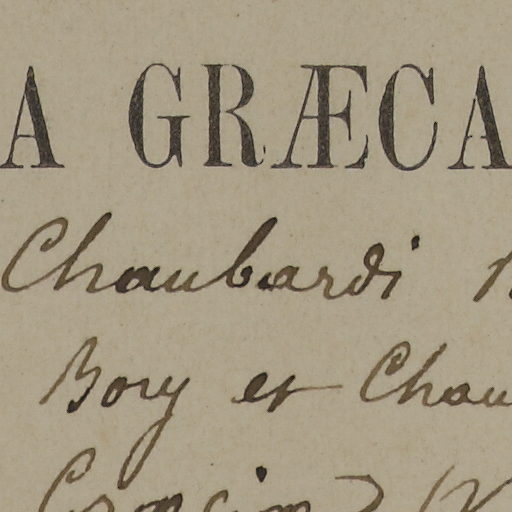 A GRÆCA
Chaubardi
Bory et Chau